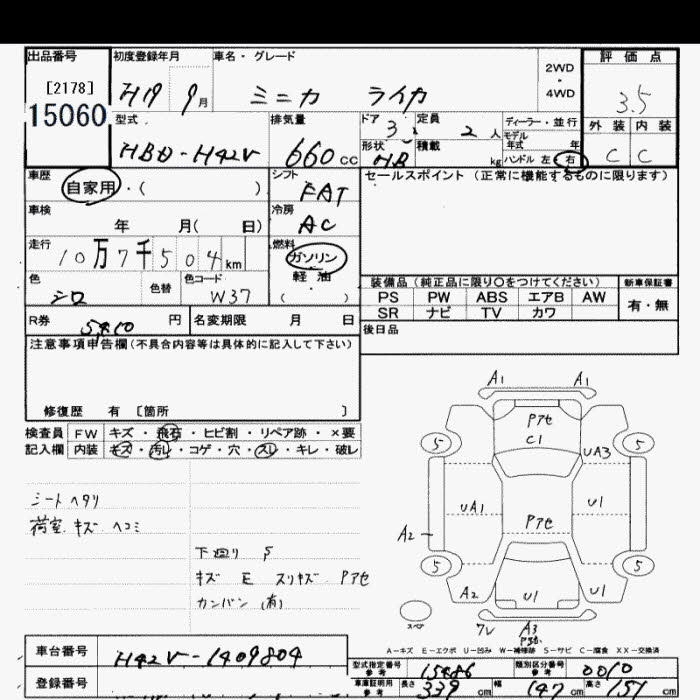 出品番号
[2178]
15060
初度登録年月
H19 9月
車名・グレード
ミニカ ライカ
2WD
・
4WD
評価点
3.5
外装 内装
C C
型式
HBD-H42V
排気量
660cc
ドア 3
形状 HB
定員 2人
積載 kg
ディーラー・並行
モデル年式 年
ハンドル 左 右
車歴
自家用・( )
車検
年 月( 日)
走行
10万7千504km
シフト
FAT
冷房
AC
燃料
ガソリン
軽・油
( )
色
シロ
色替
色コード
W37
R券 円
名変期限 月 日
セールスポイント (正常に機能するものに限ります)
装備品 (純正品に限り○をつけてください)
PS PW ABS エアB AW
SR ナビ TV カワ
新車保証書
有・無
後日品
注意事項申告欄(不具合内容等は具体的に記入して下さい)
修復歴 有 〔箇所 〕
検査員 FW キズ・飛石・ヒビ割・リペア跡・×要
記入欄 内装 キズ・汚レ・コゲ・穴・スレ・キレ・破レ
シートヘタリ
荷室 キズ ヘコミ
下回り S
キズ E スリキズ Pアセ
カンバン(有)
A1 A1
Pアセ
C1
5 5
UA3
UA1
U1
A2
Pアセ
5 5
A2
U1
U1
スペア
A3
A-キズ E-エクボ U-凹み W-補修跡 S-サビ C-腐食 XX-交換済
車台番号
H42V-1409804
登録番号
型式指定番号
参考
15486
類別区分番号
参考
0010
車庫証明用
参考
長さ 339 cm 幅 147 cm 高さ 151 cm